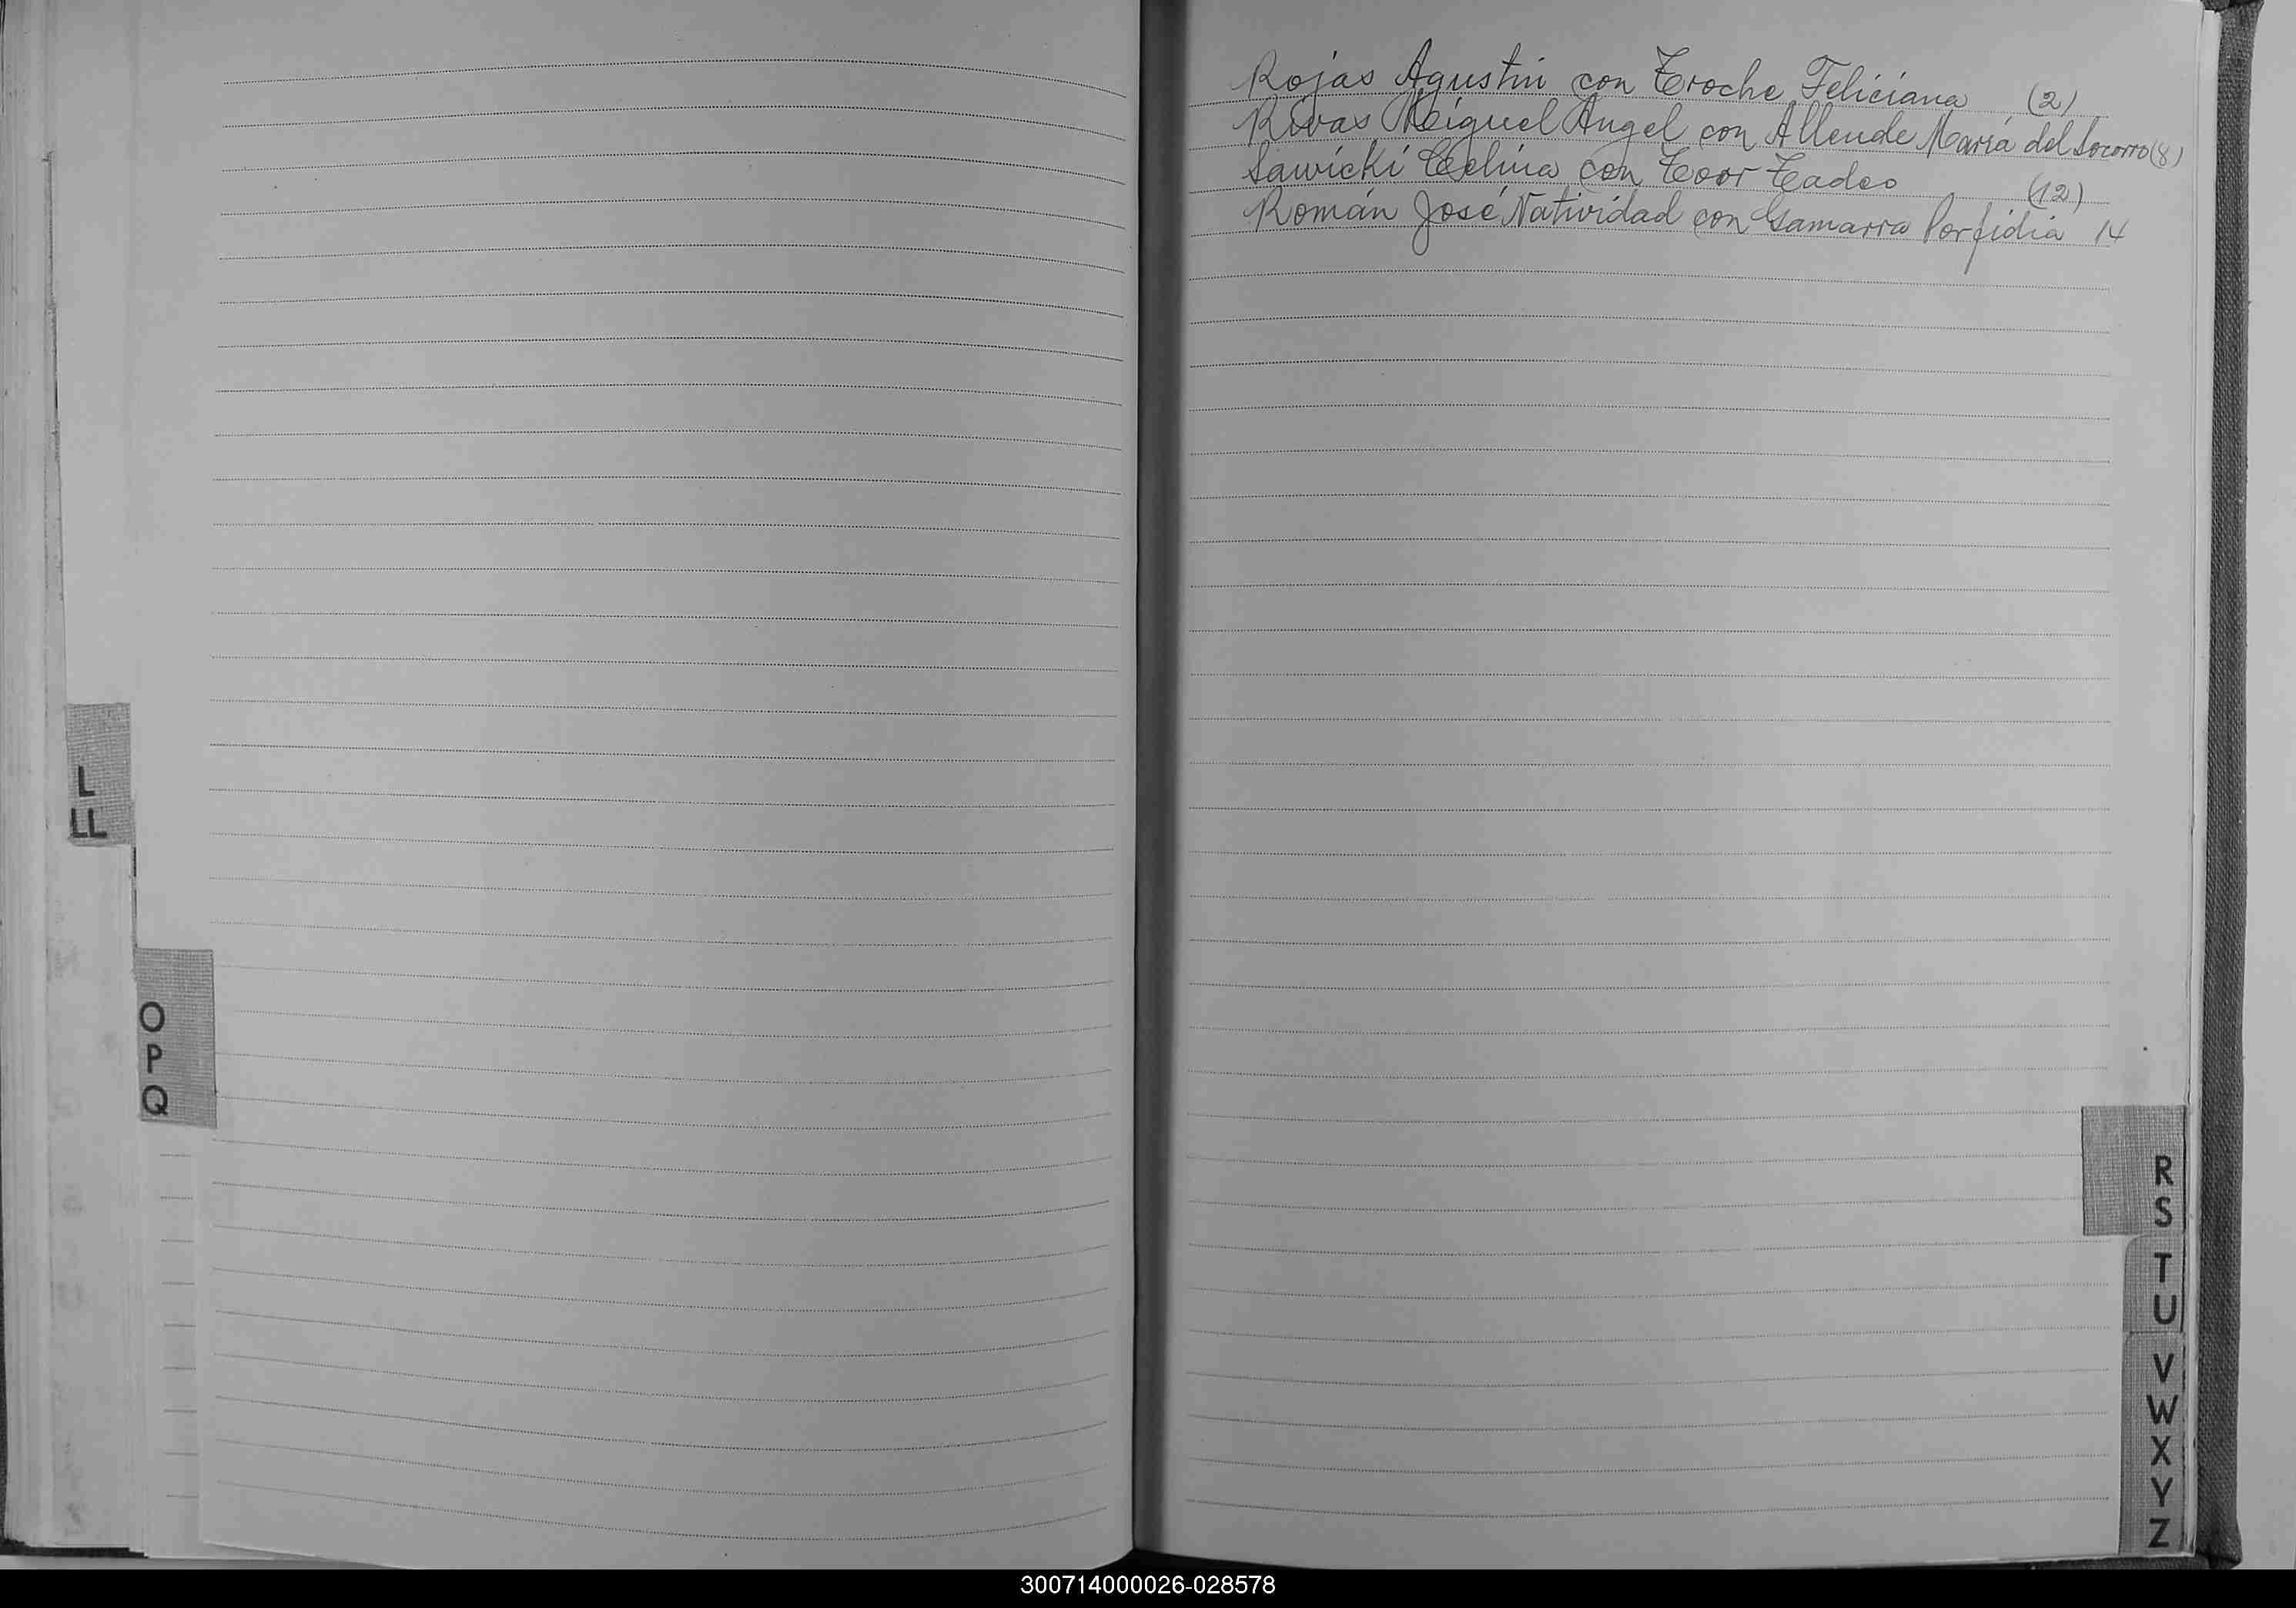 Rojas Agustin con Troche Feliciana (2)
Rivas Miguel Angel con Allende María del Socorro (8)
Sawicki Celina con Toor Tadeo (12)
Román José Natividad con Gamarra Porfidia 14
L
LL
O
P
Q
R
S
T
U
V
W
X
Y
Z
300714000026-028578